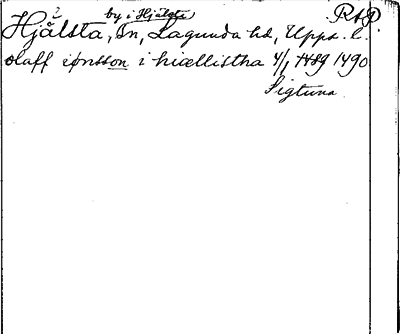 by i Hjälsta RAP.
Hjälsta, Sn, Lagunda hd, Upps. l.
olaff iønsson i hiællistha 4/1 1489 1490
Sigtuna.